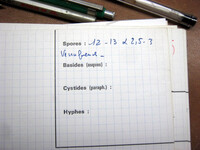 Spores : 12 - 13 x 2,5 - 3
Basides (baspes) :
Cystides (paraph.) :
Hyphes :